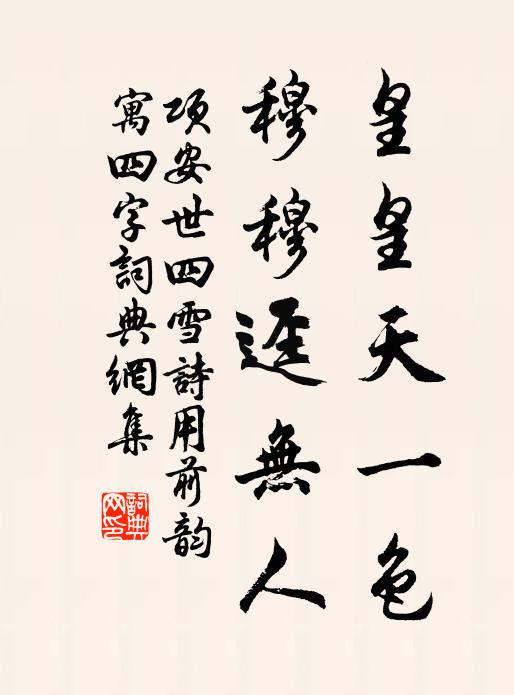 皇皇天一色
穆穆逕無人
項安世四雪詩用前韵
寓四字詞典網集
詞典网印